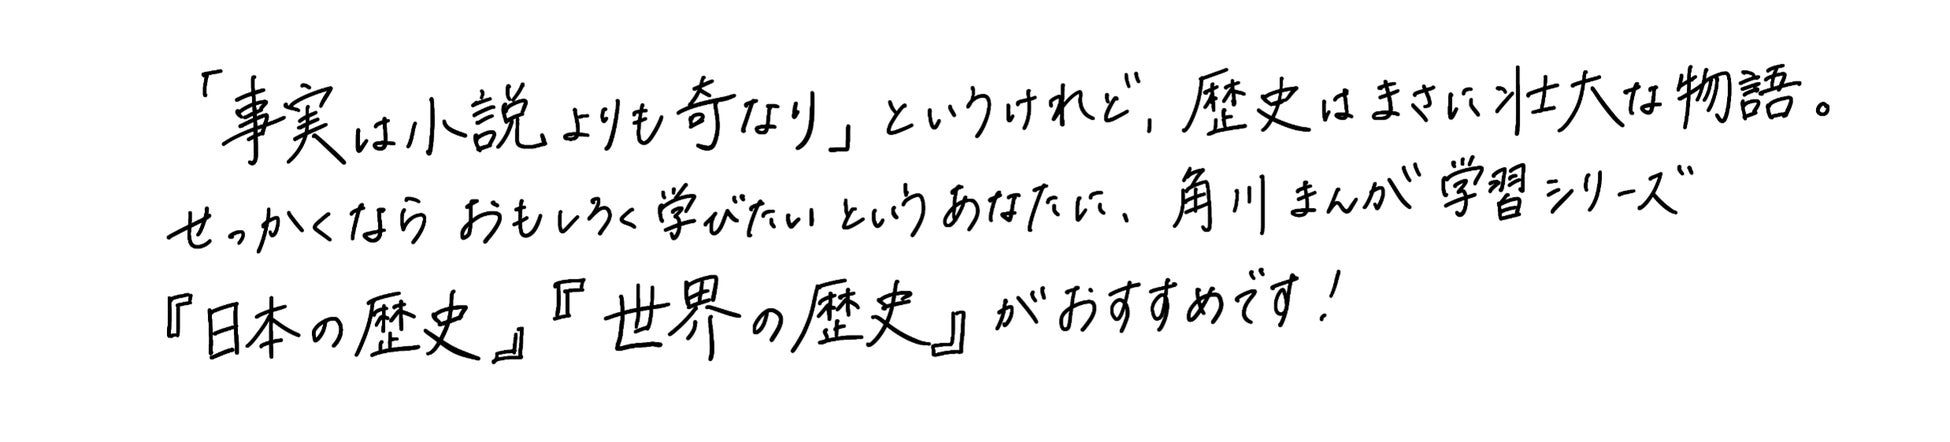 「事実は小説よりも奇なり」というけれど、歴史はまさに壮大な物語。
せっかくなら おもしろく学びたいというあなたに、角川まんが学習シリーズ
『日本の歴史』『世界の歴史』がおすすめです！